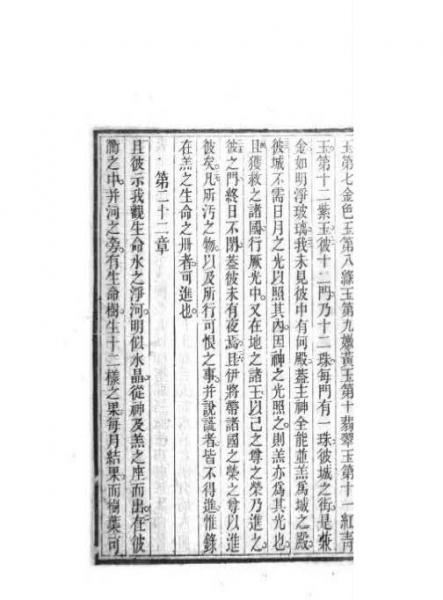 玉第七金色玉第八綠玉第九嫩黃玉第十翡翠玉第十一紅青
玉第十二紫玉彼十二門乃十二珠每門有一珠彼城之街是兼
金如明淨玻璃我未見彼中有何殿蓋主神全能並羔為城之殿
彼城不需日月之光以照其內因神之光照之則羔亦為其光也
且獲救之諸國行厥光中又在地之諸王以己之尊之榮乃進之
彼之門終日不閉蓋彼未有夜焉且伊將帶諸國之榮之尊以進
彼矣凡所汚之物以及所行可恨之事并說謊者皆不得進惟錄
在羔之生命之冊者可進也
第二十二章
且彼示我觀生命水之淨河明似水晶從神及羔之座而出在彼
衢之中并河之旁有生命樹生十二樣之果每月結果而樹葉可